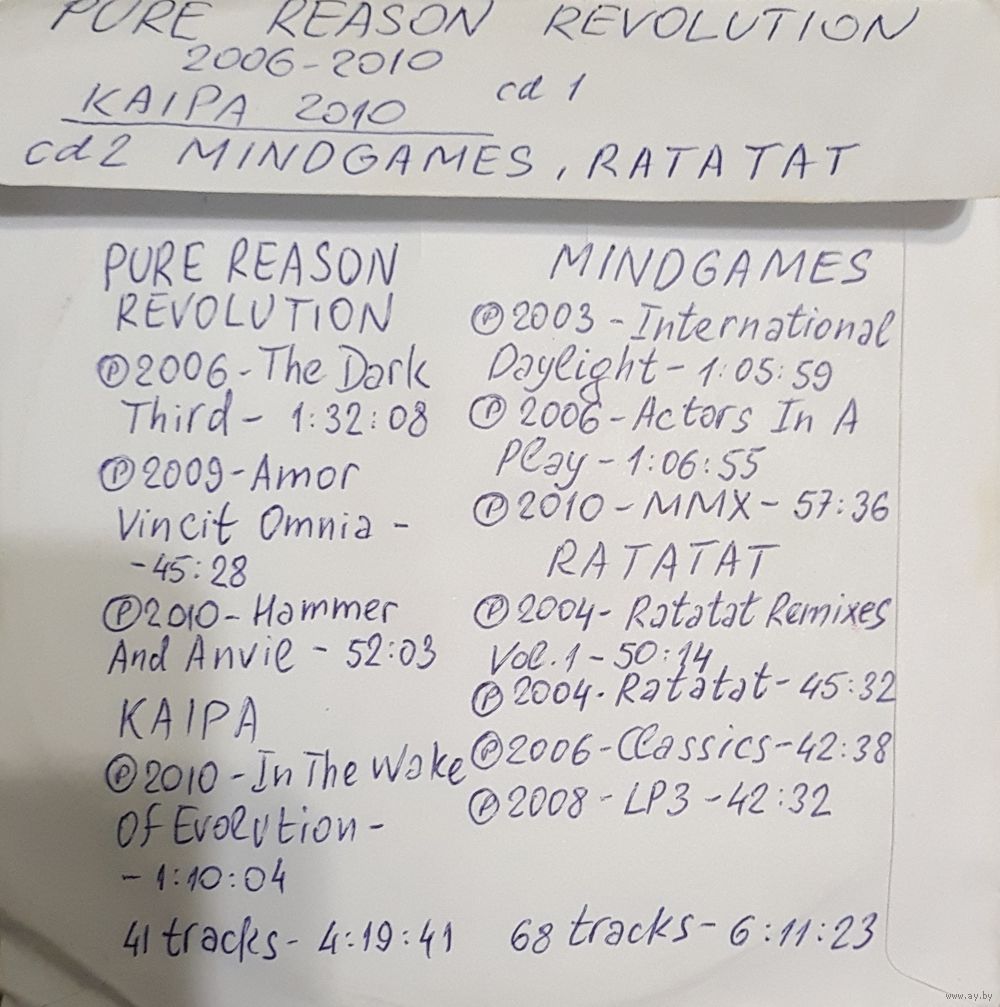 PURE REASON REVOLUTION
2006-2010
cd 1
KAIPA 2010
cd2 MINDGAMES, RATATAT
PURE REASON
REVOLUTION
Ⓟ2006-The Dark
Third- 1:32:08
Ⓟ2009-Amor
Vincit Omnia -
-45:28
Ⓟ2010-Hammer
And Anvil - 52:03
KAIPA
Ⓟ2010-In The Wake
Of Evolution-
- 1:10:04
41 tracks- 4:19:41
MINDGAMES
Ⓟ2003-International
Daylight- 1:05:59
Ⓟ 2006-Actors In A
Play-1:06:55
Ⓟ2010-MMX- 57:36
RATATAT
Ⓟ2004- Ratatat Remixes
Vol.1-50:14
Ⓟ 2004- Ratatat- 45:32
Ⓟ2006-Classics-42:38
Ⓟ2008-LP3-42:32
68 tracks- 6:11:23
www.ay.by